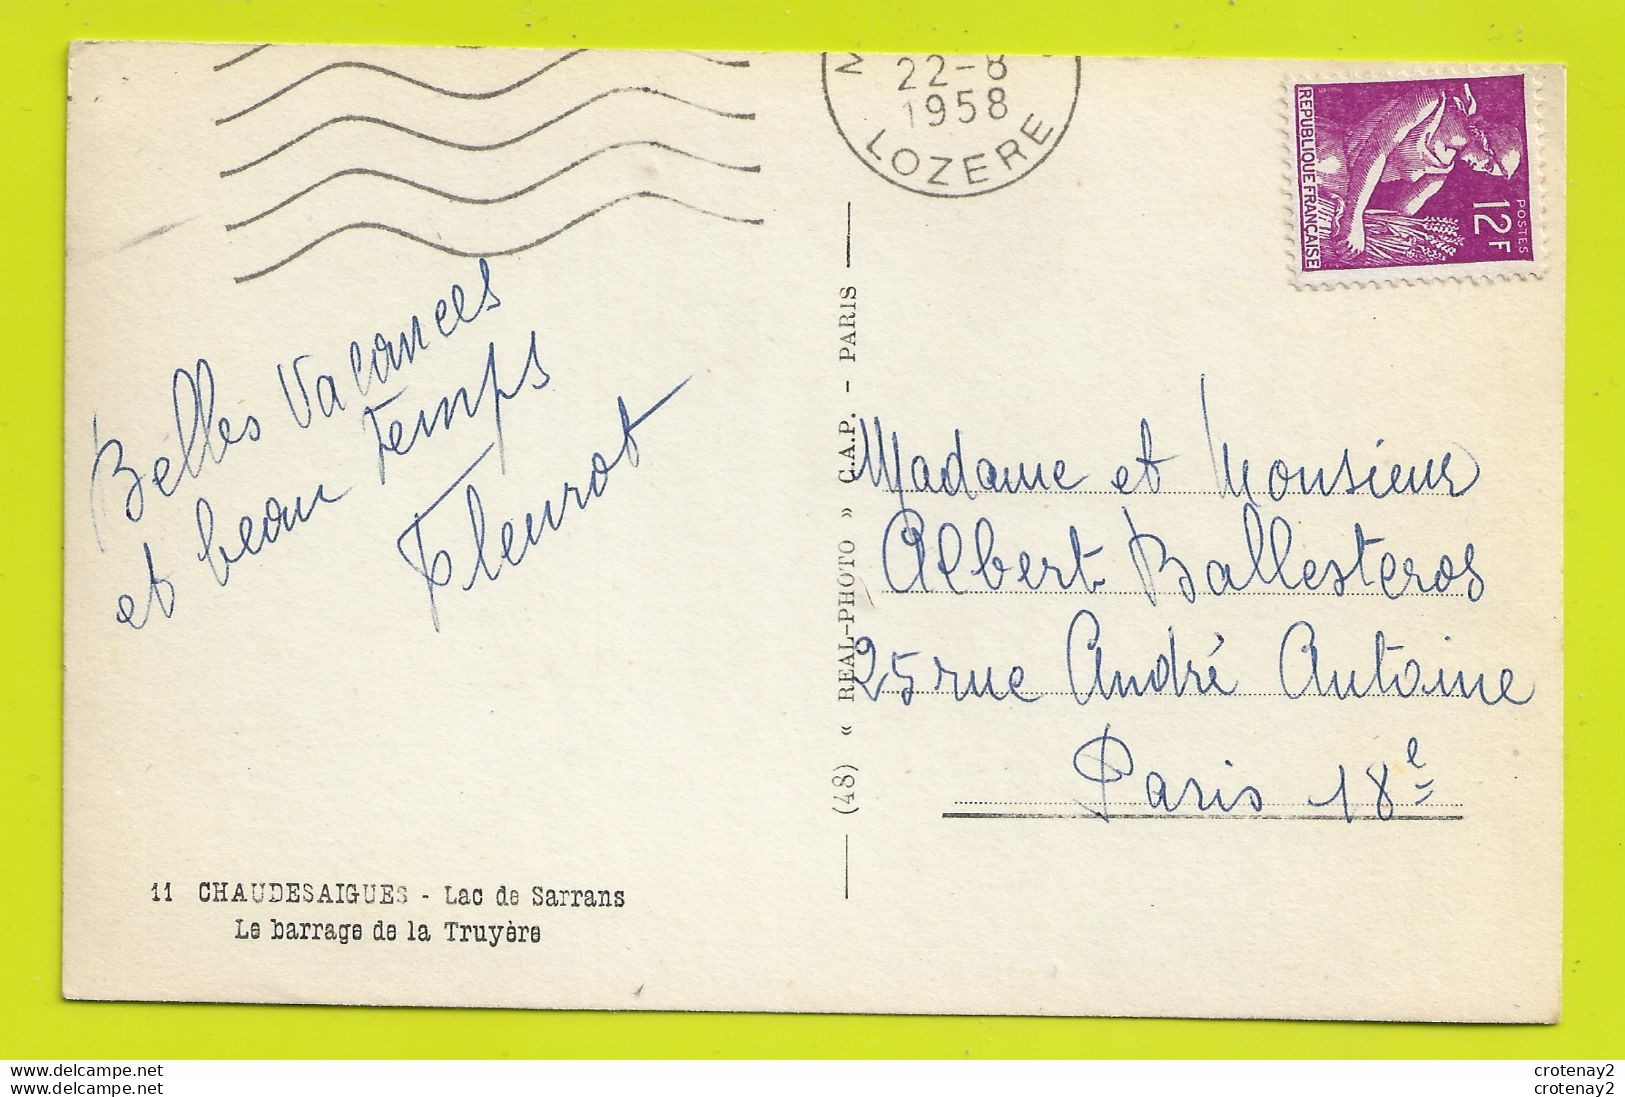 22-8
1958
LOZERE
REPUBLIQUE FRANÇAISE
12F
POSTES
Belles Vacances
et beau temps
Fleurot
(48) « REAL-PHOTO » C.A.P. - PARIS
Madame et Monsieur
Albert Ballesteros
25 rue André Antoine
Paris 18e
11 CHAUDESAIGUES - Lac de Sarrans
Le barrage de la Truyère
www.delcampe.net
www.delcampe.net
crotenay2
crotenay2